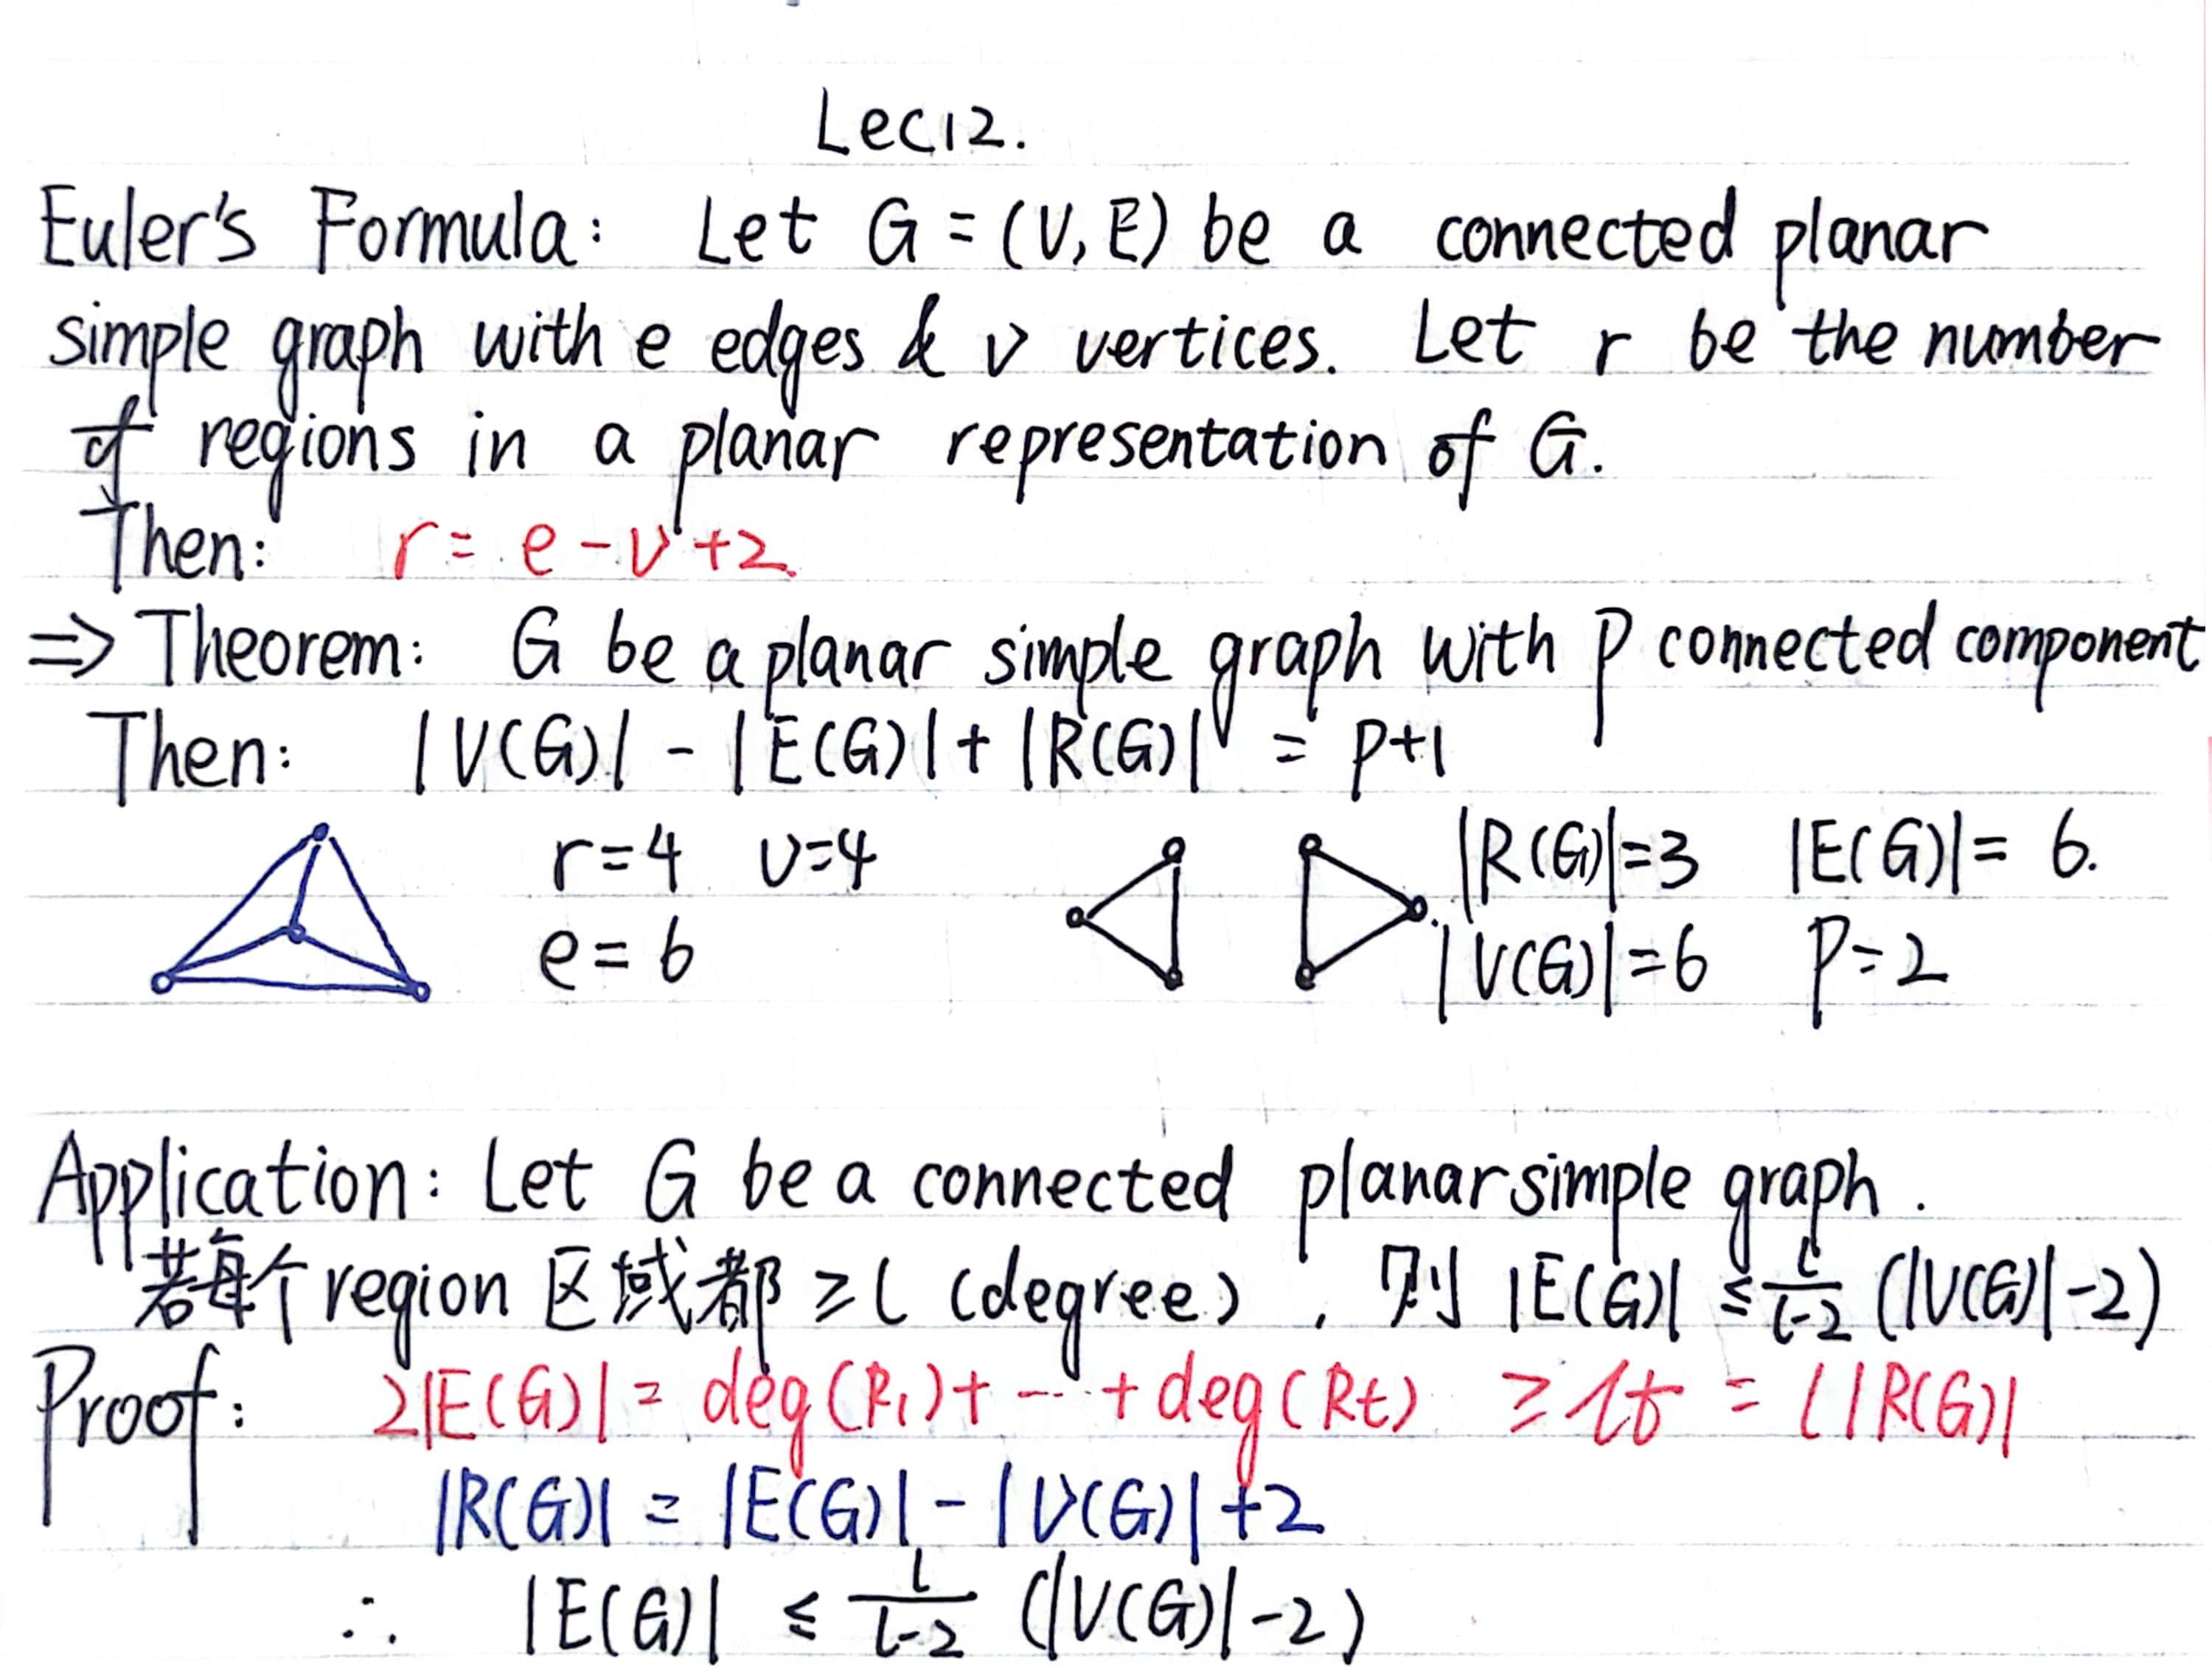 Lec12.
Euler's Formula: Let G = (V, E) be a connected planar
simple graph with e edges & v vertices. Let r be the number
of regions in a planar representation of G.
Then: r = e - v + 2
⇒ Theorem: G be a planar simple graph with p connected component
Then: |V(G)| - |E(G)| + |R(G)| = p+1
r=4 v=4 |R(G)|=3 |E(G)|= 6.
e=6 |V(G)|=6 p=2
Application: Let G be a connected planar simple graph.
若每个region 区域都 ≥ l (degree), 则 |E(G)| ≤ l/(l-2) (|V(G)|-2)
Proof: 2|E(G)| = deg(R₁)+ ··· + deg(Rt) ≥ lt = l|R(G)|
|R(G)| = |E(G)| - |V(G)| + 2
∴ |E(G)| ≤ l/(l-2) (|V(G)|-2)